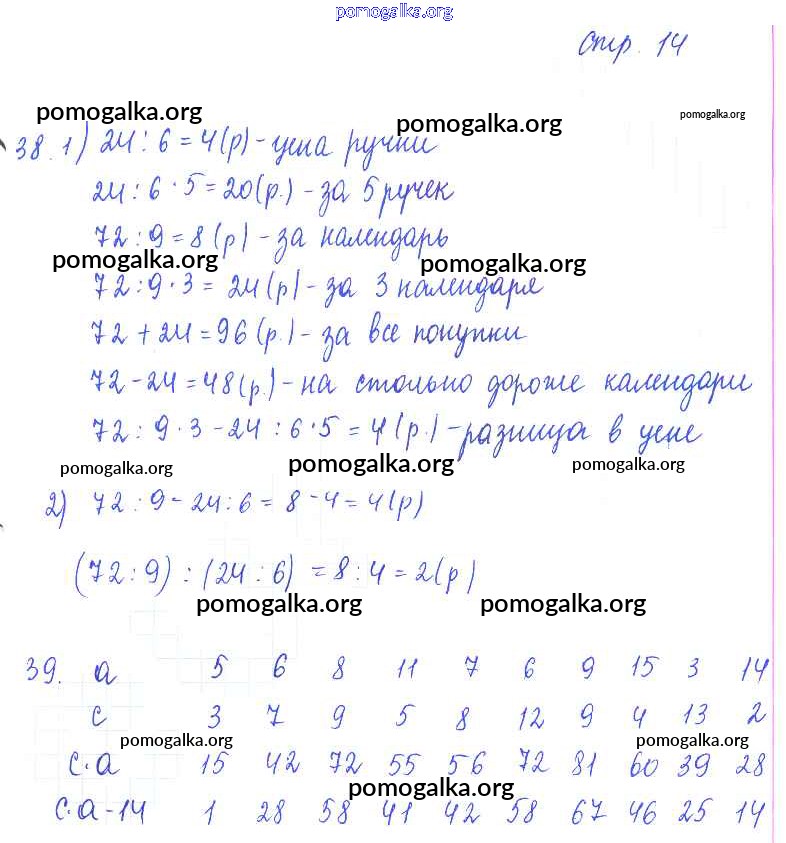 pomogalka.org
стр. 14
pomogalka.org pomogalka.org pomogalka.org
38. 1) 24 : 6 = 4 (р) - цена ручки
24 : 6 · 5 = 20 (р.) - за 5 ручек
72 : 9 = 8 (р) - за календарь
pomogalka.org pomogalka.org
72 : 9 · 3 = 24 (р) - за 3 календаря
72 + 24 = 96 (р.) - за все покупки
72 - 24 = 48 (р.) - на столько дороже календари
72 : 9 · 3 - 24 : 6 · 5 = 4 (р.) - разница в цене
pomogalka.org pomogalka.org pomogalka.org
2) 72 : 9 - 24 : 6 = 8 - 4 = 4 (р)
(72 : 9) : (24 : 6) = 8 : 4 = 2 (р)
pomogalka.org pomogalka.org
39. a 5 6 8 11 7 6 9 15 3 14
c 3 7 9 5 8 12 9 4 13 2
pomogalka.org pomogalka.org
c·a 15 42 72 55 56 72 81 60 39 28
pomogalka.org
c·a - 14 1 28 58 41 42 58 67 46 25 14